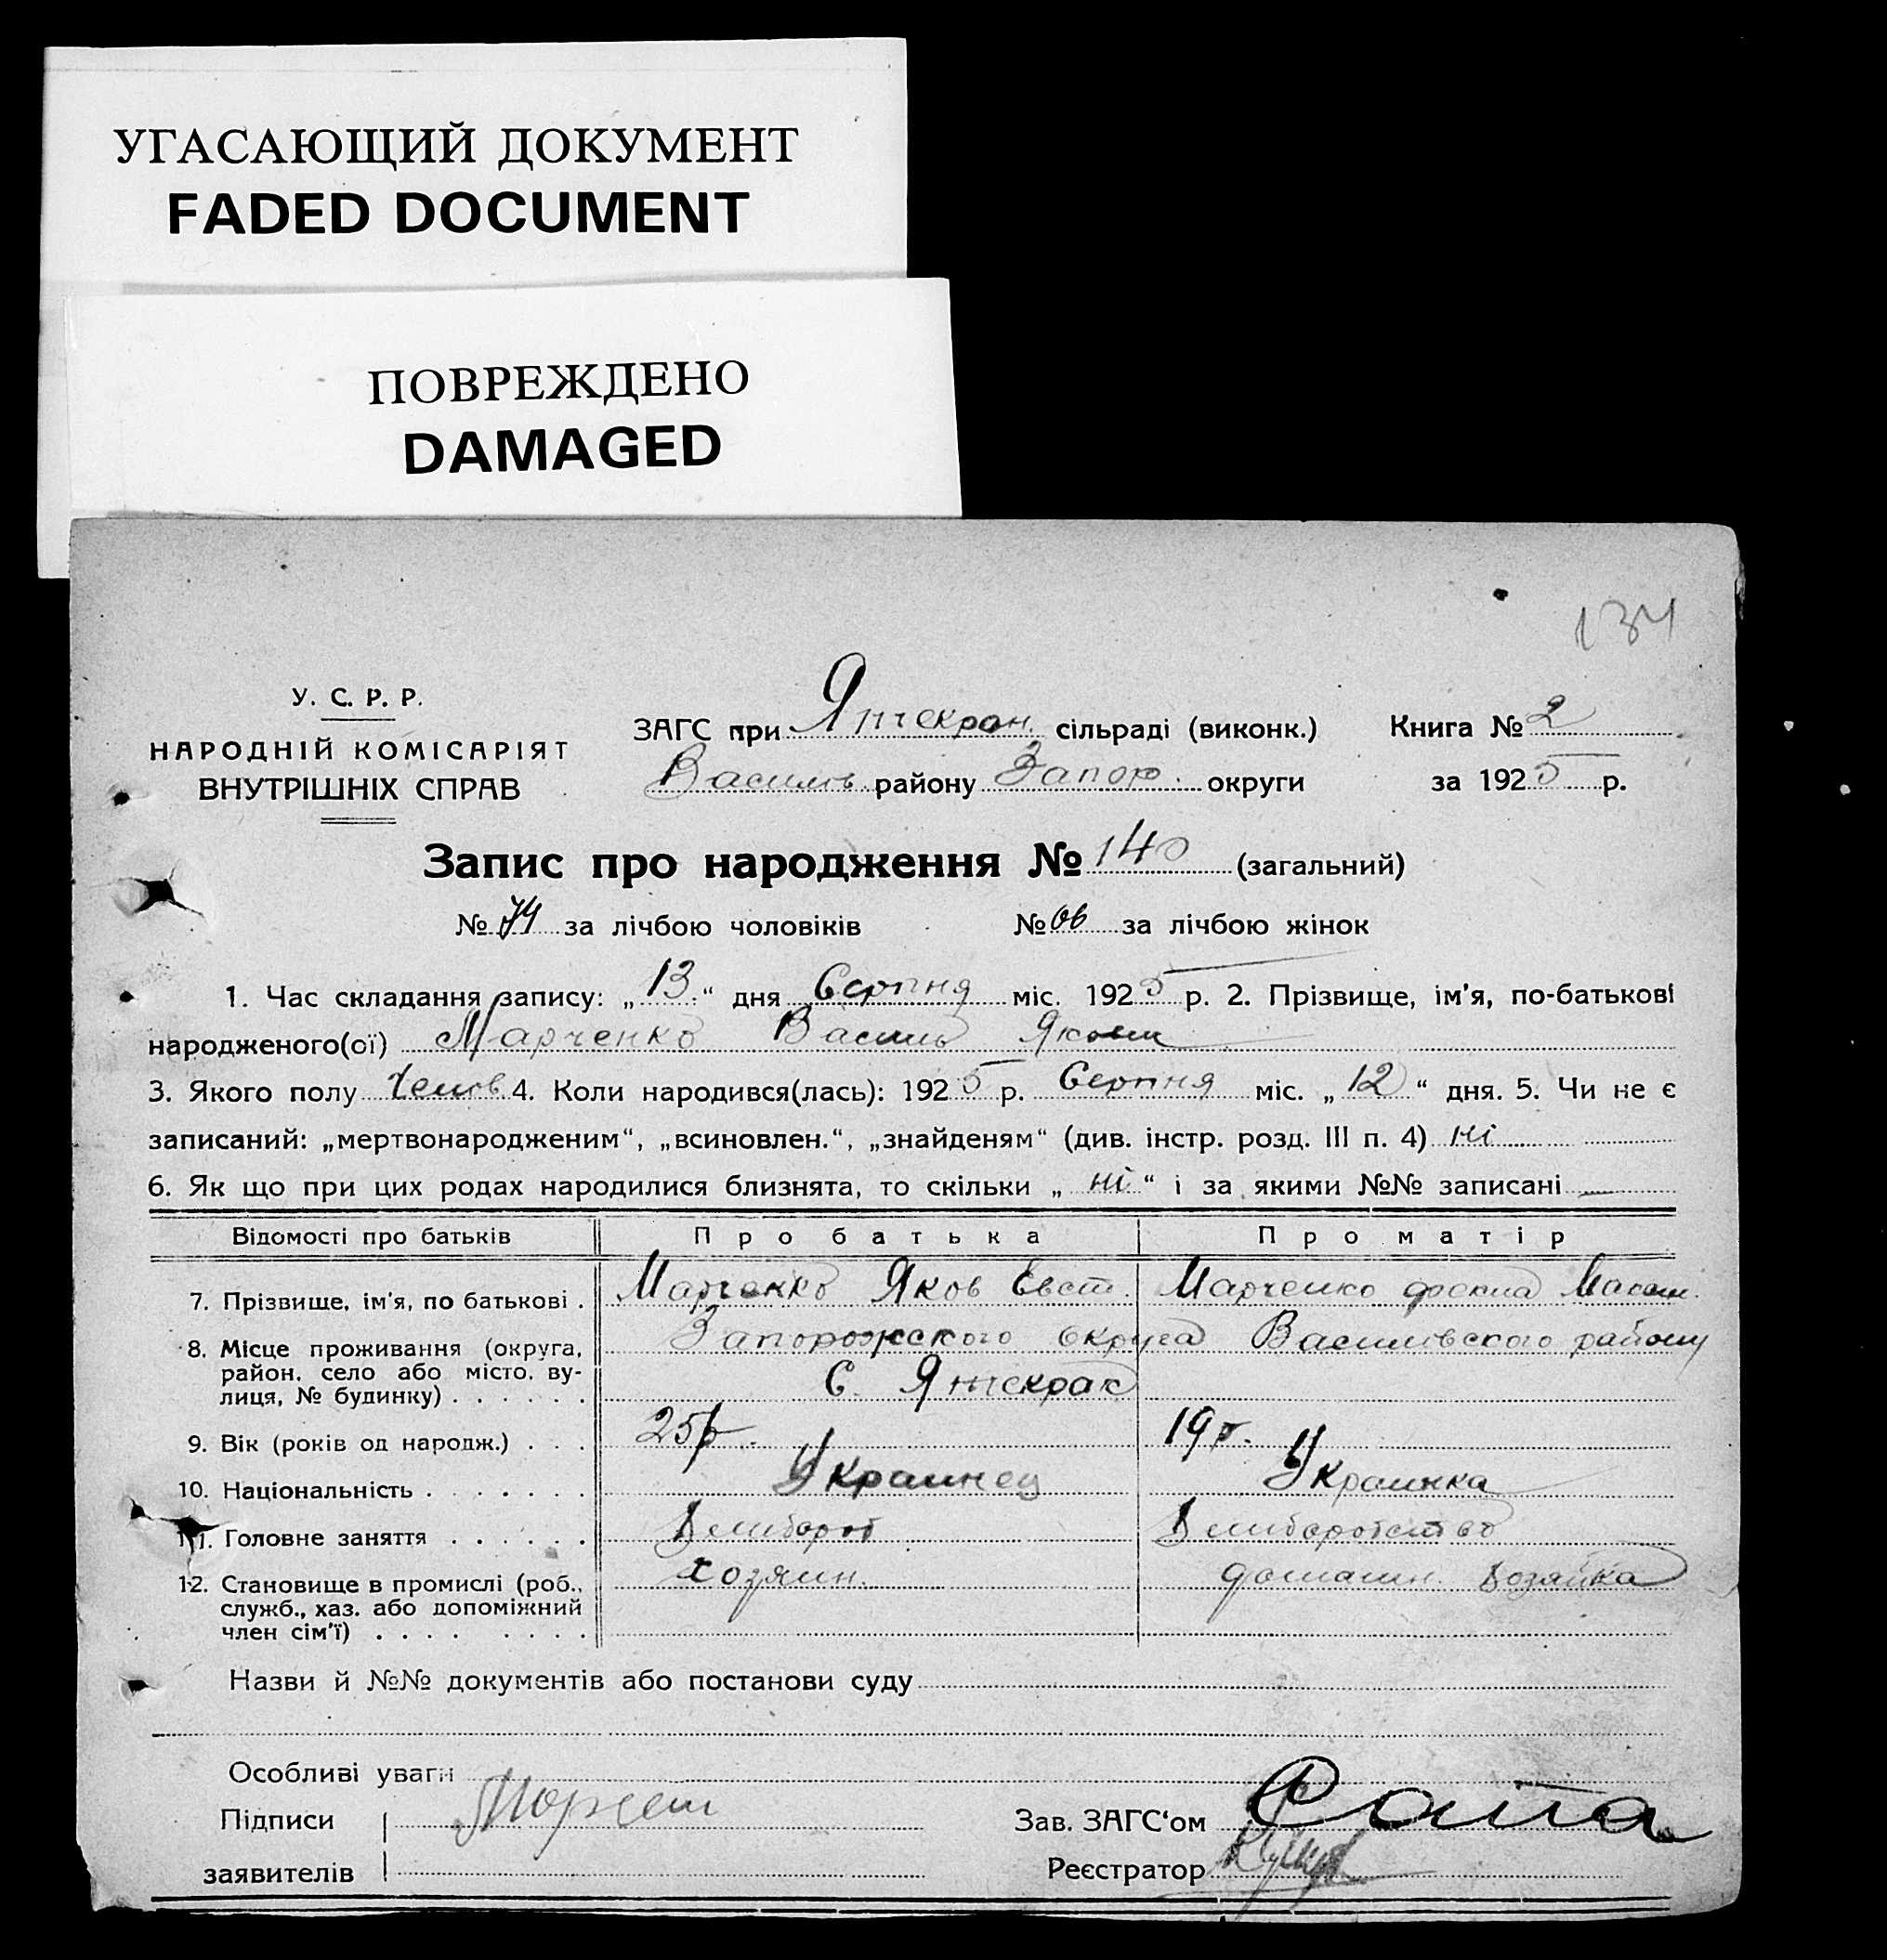 УГАСАЮЩИЙ ДОКУМЕНТ
FADED DOCUMENT
ПОВРЕЖДЕНО
DAMAGED
134
У. С. Р. Р.
НАРОДНІЙ КОМІСАРІЯТ
ВНУТРІШНІХ СПРАВ
ЗАГС при Янчекрак. сільраді (виконк.) Книга № 2
Василів. району Запор. округи за 1925 р.
Запис про народження № 140 (загальний)
№ 74 за лічбою чоловіків № 66 за лічбою жінок
1. Час складання запису: „13“ дня Серпня міс. 1925 р. 2. Прізвище, ім'я, по-батькові
народженого(ої) Марченко Василь Якови
3. Якого полу Челов 4. Коли народився(лась): 1925 р. Серпня міс. „12“ дня. 5. Чи не є
записаний: „мертвонародженим“, „всиновлен.“, „знайденям“ (див. інстр. розд. III п. 4) ні
6. Як що при цих родах народилися близнята, то скільки „ні“ і за якими №№ записані —
Відомості про батьків Про батька Про матір
7. Прізвище, ім'я, по батькові . Марченко Яков Евст. Марченко
8. Місце проживання (округа, Запорожского округа Василивского району
район, село або місто, ву-
лиця, № будинку) . . . . . . С. Янчекрак
9. Вік (років од народж.) . . . 25р. 19р.
10. Національність . . . . . . . Украинец Украинка
11. Головне заняття . . . . . . Хлибороб Хлиборобство
12. Становище в промислі (роб., хозяин. домашн. хозяйка
служб., хаз. або допоміжний
член сім'ї) . . . . . . . .
Назви й №№ документів або постанови суду
Особливі уваги
Підписи
Зав. ЗАГС‘ом
заявителів
Реєстратор